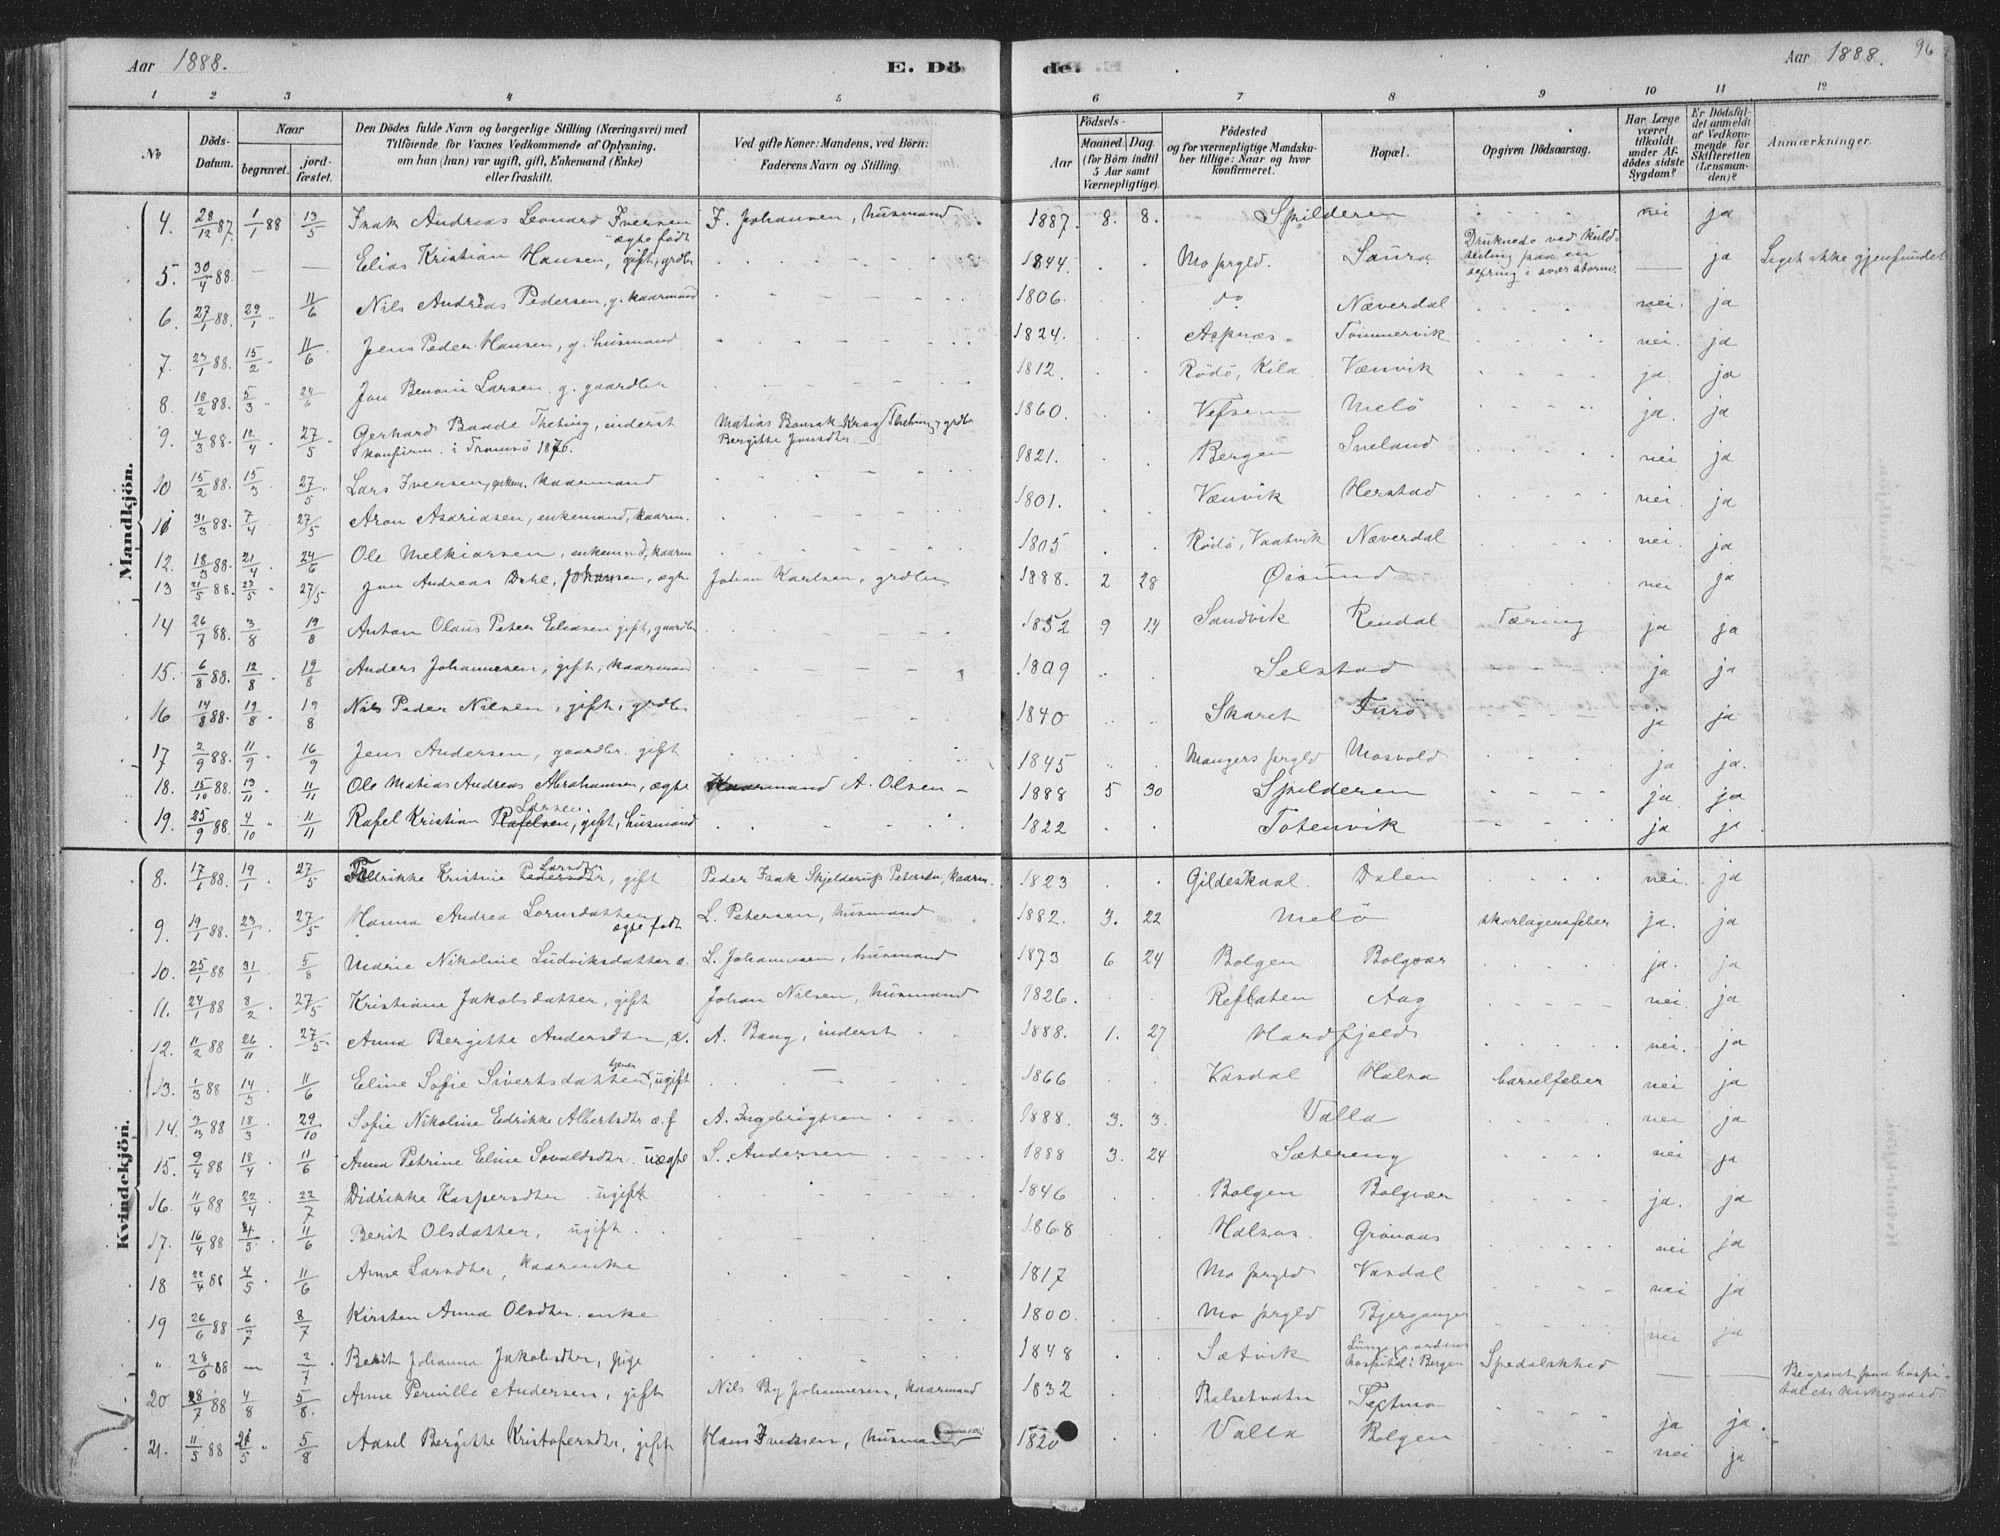 Aar 1888.
E. Dö
de.
Aar 1888.
96
1 2 3 4 5 6 7 8 9 10 11 12
No
Döds-Datum.
Naar
begravet.
jord-fæstet.
Den Dödes fulde Navn og borgerlige Stilling (Næringsvei) med
Tilföiende for Voxnes Vedkommende af Oplysning,
om han (hun) var ugift, gift, Enkemand (Enke)
eller fraskilt.
Ved gifte Koner: Mandens, ved Börn:
Faderens Navn og Stilling.
Födsels-
Aar
Maaned. Dag.
(for Börn indtil
5 Aar samt
Værnepligtige).
Födested
og for værnepligtige Mandska-
ber tillige: Naar og hvor
konfirmeret.
Bopæl.
Opgiven Dödsaarsag.
Har Læge
været
tilkaldt
under Af-
dödes sidste
Sygdom?
Er Dödsfal-
det anmeldt
af Vedkom-
mende for
Skifteretten
(Lensman-
den)?
Anmærkninger.
Mandkjön.
4. 28/12 87. 1/1 88 13/5 Isak Andreas Leonard Iversen ægte födt I. Johansen, husmand 1887 8. 8. Spilderen nei ja
5. 30/4 88. — — Elias Kristian Hansen, gift, grdbr 1844. Mo prgld. Saura Druknede ved Kuld-seiling paa en i svær storm. — ja Liget ikke gjenfundet
6. 27/1 88. 29/1 11/6 Nils Andreas Pedersen, g. kaarmand 1806. do Næverdal nei. ja
7. 23/1 88. 15/2 11/6 Jens Peder Hansen, g. husmand 1824. Aspnæs Tömmervik nei. ja
8. 18/2 88. 5/3 24/6 Jon Benoni Larsen g. gaardbr 1812. Rödö, Kila Vænvik ja. ja
9. 4/3 88. 12/4 27/5 Gerhard Baade Theting, inderst konfirm. i Tromsö 1876. Matias Bonsak Krag Theting, grdbr Bergitte Jonsdtr. 1860. Vefsen Melö ja. ja
10 15/2 88. 15/3 27/5 Lars Iversen, enkem. kaarmand 1821. Bergen Sneland nei ja
11 31/3 88. 7/4 27/5 Aron Asariasen, enkemand, kaarm. 1801. Vænvik Herstad nei. ja
12. 18/3 88. 21/4 24/6 Ole Melkiorsen, enkemnd, kaarm 1805 Rödö, Vaatvik Næverdal nei. ja
13 21/5 88. 23/5 27/5 Jon Andreas Dahl, Johansen, ægte Johan Karlsen, grdbr 1888. 2 28 Öisund nei ja
14 26/7 88. 3/8 19/8 Anton Olaus Peter Eliasen gift, gaardbr 1852 9 14 Sandvik Rendal Tæring ja ja
15. 6/8 88. 12/8 19/8 Anders Johannesen, gift, kaarmand 1809 Selstad ja ja
16 14/8 88. 19/8 19/8 Nils Peder Nilsen, gift, grdbr 1840 Skaret Furö ja ja
17 2/9 88. 11/9 16/9 Jens Andersen, gaardbr. gift 1845 Mangers prgld Mosvold ja ja.
18. 15/10 88. 13/11 11/11 Ole Matias Andreas Abrahamsen, ægte Kaarmand A. Olsen — 1888 5 30 Spilderen ja. ja
19. 25/9 88. 4/10 11/11 Rafel Kristian Rafelsen Larsen, gift, husmand 1822 Totenvik ja ja
Kvindekjön.
8. 17/1 88. 19/1 27/5 Fredrikke Kristine Pedersdtr Larsdtr, gift Peder Isak Skjelderup Petersen, kaarm. 1823 Gildeskaal. Dalen nei. ja
9. 19/1 88. 23/1 27/5 Hanna Andrea Lornsdatter ægte födt L. Petersen, husmand 1882. 3. 22 Melö skarlagensfeber ja. ja
10. 25/1 88 31/1 5/8 Nikoline Ludviksdatter æ. L. Johannesen, husmand 1873 6 24 Bolgen Bolgvær ja. ja
11. 24/1 88 8/2 27/5 Kristiane Jakobsdatter, gift Johan Nilsen, husmand 1826. Reflaten Aag nei. ja
12. 11/2 88 26/11 27/5 Anna Bergitte Andersdtr, æ. A. Bang, inderst 1888. 1. 27 Hardfjeld nei. ja
13. 1/3 88 14/3 11/6 Eline Sofie Sivertsdatter tjener, ugift — 1866 Vasdal Halsa barselfeber nei ja
14. 3/3 88 18/3 29/10 Sofie Nikoline Edrikke Albertsdtr æ.f A. Ingebrigtsen 1888. 3. 3. Valla nei ja
15. 9/4 88 18/4 11/6 Anna Petrine Eline Sevaldsdtr. uægte S. Andersen 1888 3. 24 Sætereng nei ja
16. 11/4 88 22/4 22/7 Didrikke Kaspersdtr ugift 1846 Bolgen Bolgvær ja. ja
17. 16/4 88 4/5 11/6 Berit Olsdatter, ugift. 1868 Halsos. Grönaas nei ja
18 22/4 88 4/5 11/6 Anne Larsdtr, kaarenke 1817 Mo prgld Vasdal nei ja
19 26/6 88 6/7 8/7 Kirsten Anna Olsdtr. enke 1800. Mo prgld Bjerganger nei ja
" 28/6 88 — 2/7 Berit Johanna Jakobsdtr, pige 1848 Sætvik Lungegaardens hospital i Bergen Spedalskhed — — Begravet paa hospi-talets kirkegaard
20 28/7 88 4/8 5/8. Anne Pernille Andersen, gift Nils By Johannesen, kaarmand 1832 Balsetvatn Teptmo ja ja
21. 11/5 88 21/5 5/8 Axsel Bergitte Kristofersdtr, gift Hans Iversen, husmand 1820 Valla Bolgen nei ja